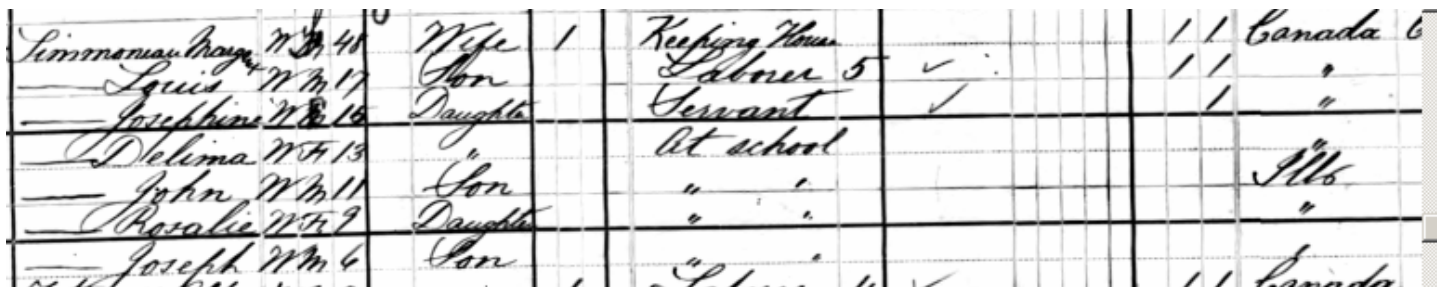 Simmoneau Marg W 48 Wife 1 Keeping House 1 1 Canada
— Louis W M 17 Son Laborer 5 ✓ 1 1 "
— Josephine W 15 Daughter Servant ✓ 1 "
— Delima W F 13 " At school "
— John W M 11 Son " " Ills
— Rosalie W F 9 Daughter " " "
— Joseph W M 6 Son " "
1 Laborer ✓ 1 1 Canada